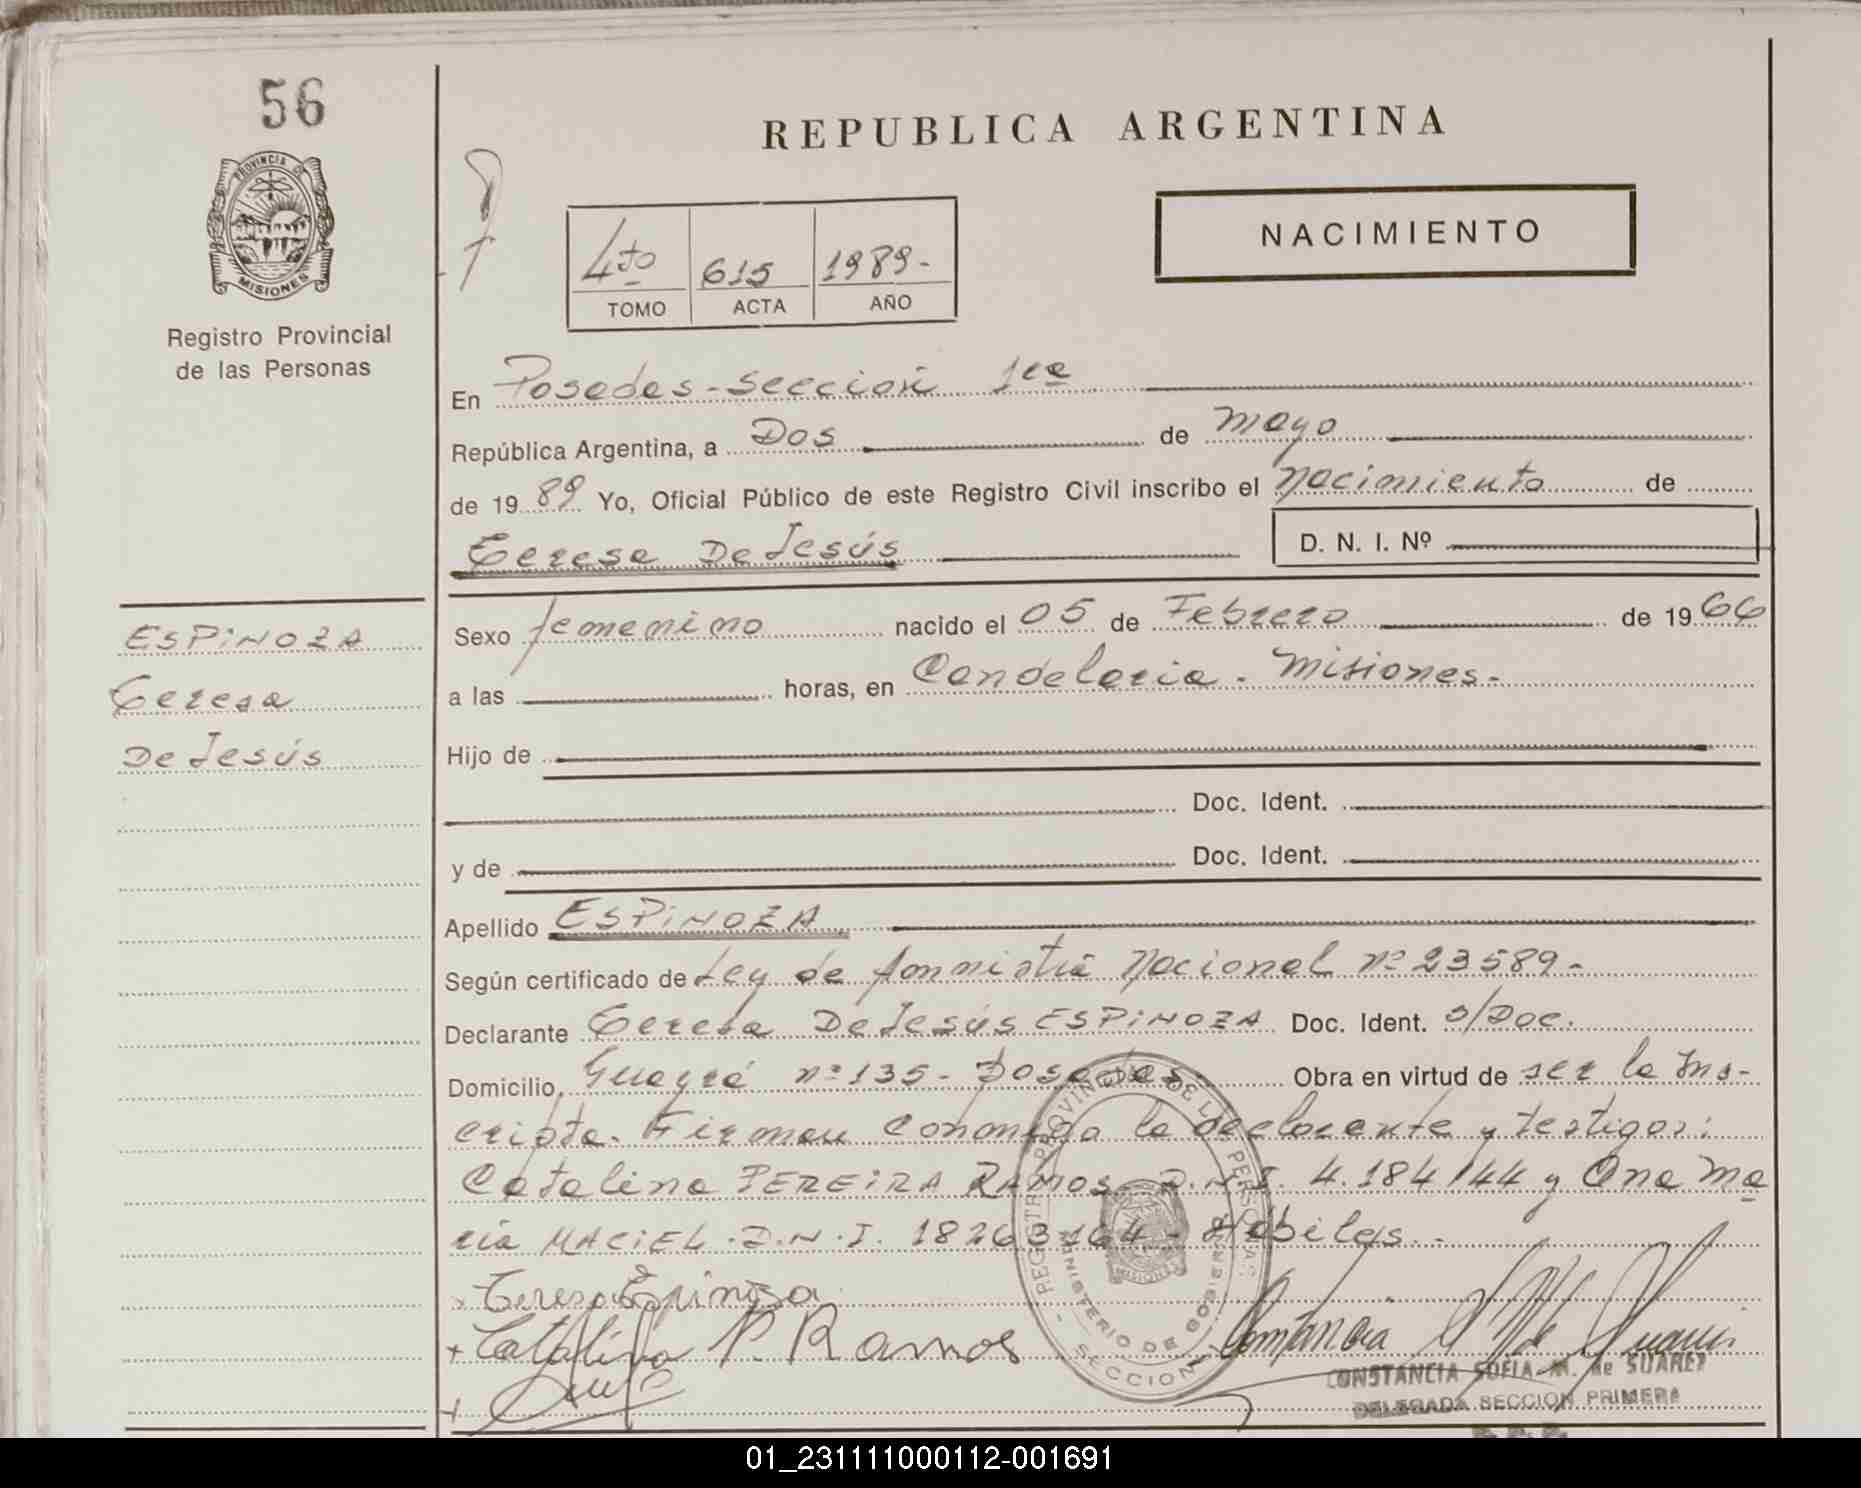 56
PROVINCIA DE
MISIONES
Registro Provincial
de las Personas
ESPINOZA
Teresa
De Jesús
REPUBLICA ARGENTINA
NACIMIENTO
4to 615 1989.-
TOMO ACTA AÑO
En Posadas - Sección 1ra
República Argentina, a Dos de Mayo
de 1989 Yo, Oficial Público de este Registro Civil inscribo el Nacimiento de
Teresa De Jesús D. N. I. Nº
Sexo femenino nacido el 05 de Febrero de 1966
a las horas, en Candelaria - Misiones.-
Hijo de
Doc. Ident.
y de Doc. Ident.
Apellido ESPINOZA
Según certificado de Ley de Amnistia Nacional nº 23589-
Declarante Teresa De Jesús ESPINOZA Doc. Ident. s/Doc.
Domicilio Guayrá nº 135 - Posadas Obra en virtud de ser la Ins-
cripta. Firman Conmigo la declarante y testigos:
Catalina PEREIRA RAMOS D.N.I. 4.184144 y Ana Ma
ria MACIEL. D.N.I. 18263164 - Hábiles.-
Teresa Espinoza
+ Catalina P. Ramos
Constancia S M de Suarez
CONSTANCIA SOFIA M. de SUAREZ
DELEGADA SECCION PRIMERA
REGISTRO PROVINCIAL DE LAS PERSONAS
MINISTERIO DE GOBIERNO
MISIONES
SECCION 1
01_231111000112-001691